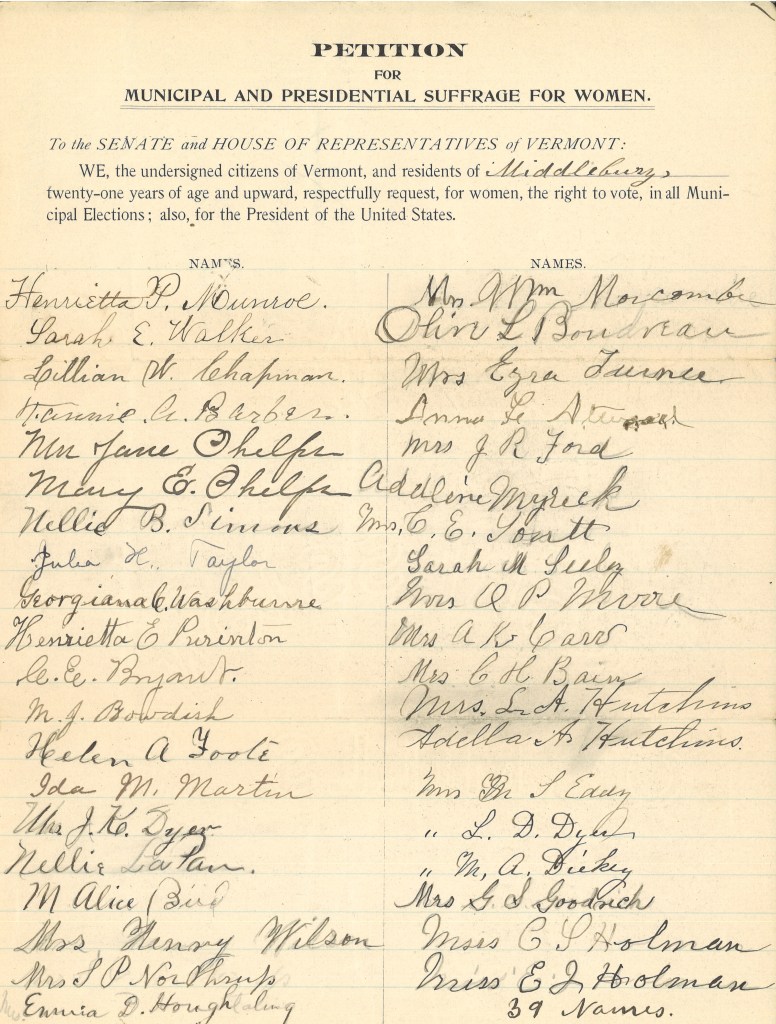 PETITION
FOR
MUNICIPAL AND PRESIDENTIAL SUFFRAGE FOR WOMEN.
To the SENATE and HOUSE OF REPRESENTATIVES of VERMONT:
WE, the undersigned citizens of Vermont, and residents of Middlebury,
twenty-one years of age and upward, respectfully request, for women, the right to vote, in all Muni-
cipal Elections; also, for the President of the United States.
NAMES.
Henrietta P. Munroe.
Sarah E. Walker
Lillian W. Chapman.
Fannie A. Barber.
Mrs Jane Phelps
Mary E. Phelps
Nellie B. Simons
Julia H. Taylor
Georgiana C. Washburne
Henrietta E Purinton
C. E. Bryant.
M. J. Bowdish
Helen A Foote
Ida M. Martin
Mrs J. K. Dyer
Nellie LaPan.
M Alice Bird
Mrs Henry Wilson
Mrs S P Northrup
Emma D. Houghtaling
NAMES.
Mrs Wm Morcombe
Olive L Boudreau
Mrs Ezra Turner
Anna L.
Mrs J R Ford
Addline Myrick
Mrs. C. E.
Sarah M Seeley
Mrs O P Moore
Mrs A K Carr
Mrs C H Bain
Mrs. L. A. Hutchins
Adella A. Hutchins.
Mrs M S Eddy
" L. D. Dyer
" M. A. Dickey
Mrs G. S. Goodrich
Miss C S Holman
Miss E J Holman
39 Names.